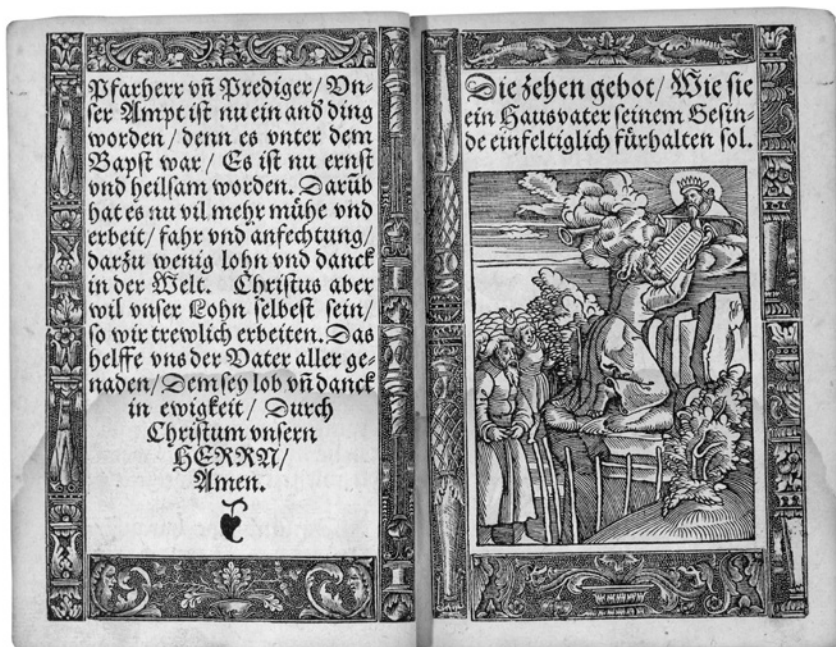 Pfarherr vñ Prediger/ Vn-
ser Ampt ist nu ein and ding
worden/ denn es vnter dem
Bapst war/ Es ist nu ernst
vnd heilsam worden. Darüb
hat es nu vil mehr mühe vnd
erbeit/ fahr vnd anfechtung/
darzu wenig lohn vnd danck
in der Welt. Christus aber
wil vnser Lohn selbest sein/
so wir trewlich erbeiten. Das
helffe vns der Vater aller ge-
naden/ Dem sey lob vñ danck
in ewigkeit/ Durch
Christum vnsern
HERRN/
Amen.
Die zehen gebot/ Wie sie
ein Hausvater seinem Gesin-
de einfeltiglich fürhalten sol.